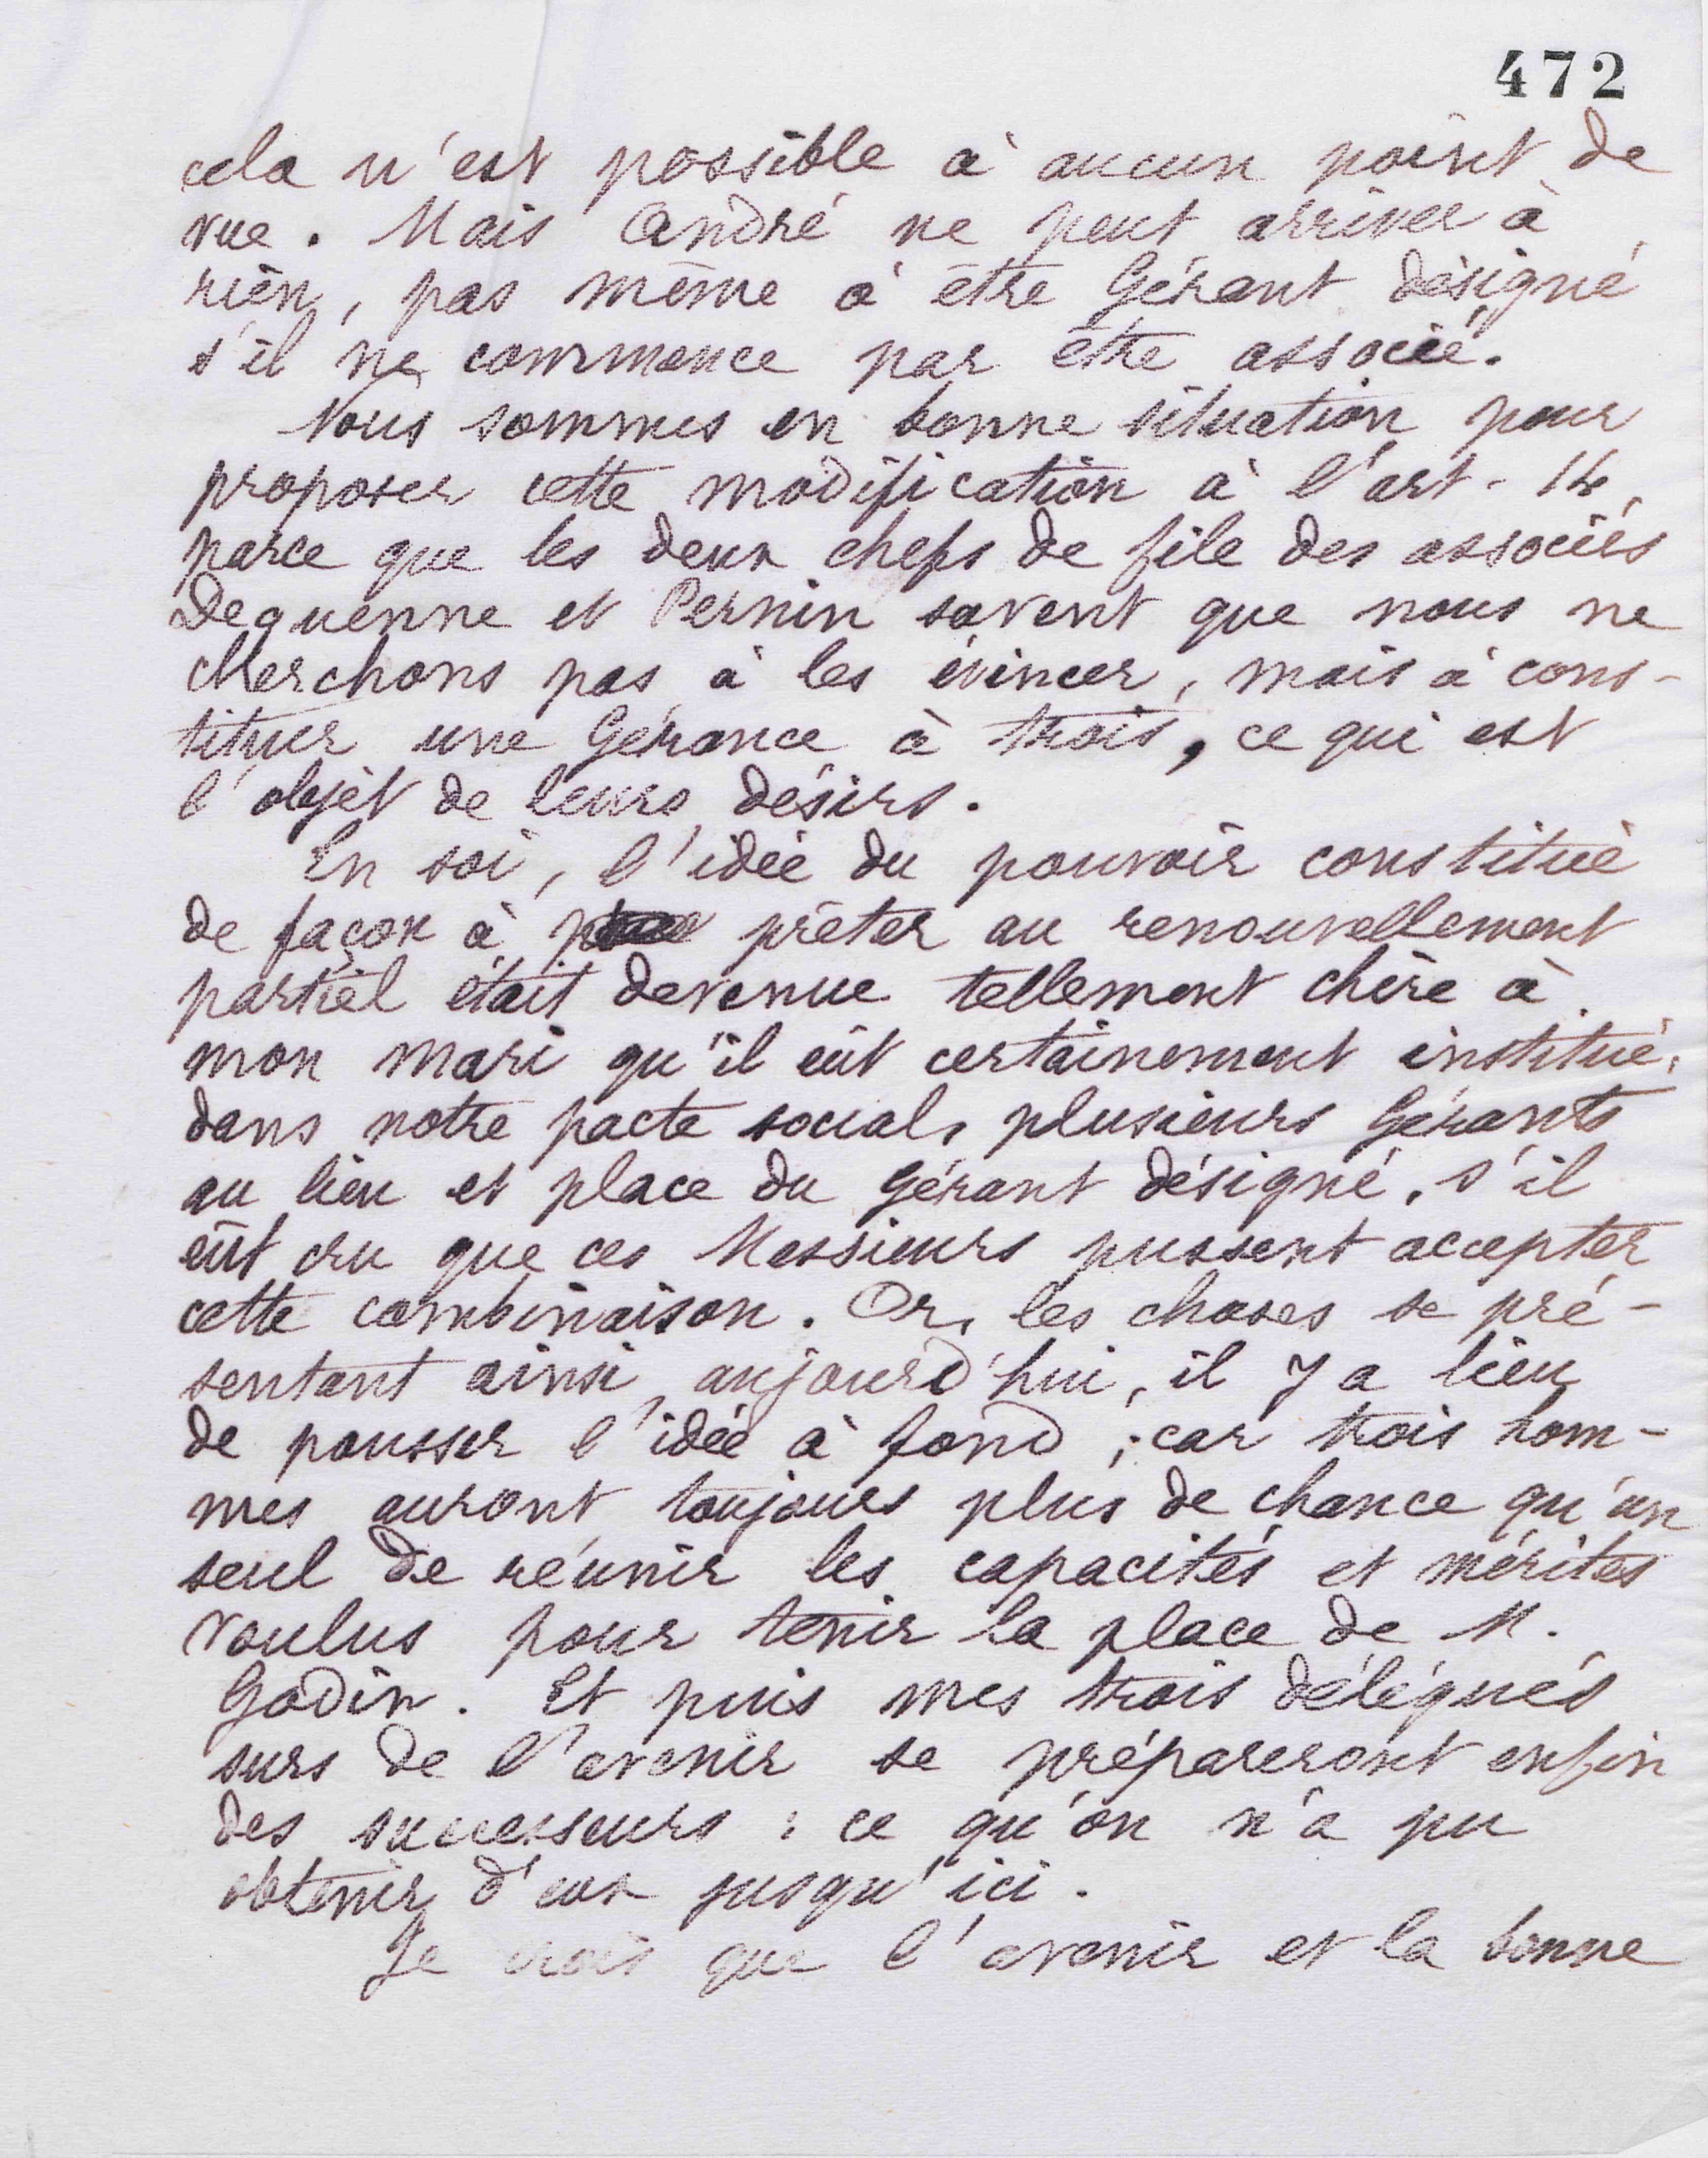 472
cela n'est possible à aucun point de
vue. Mais André ne peut arriver à
rien, pas même à être Gérant désigné
s'il ne commence par être associé.
Nous sommes en bonne situation pour
proposer cette modification à l'art. 14,
parce que les deux chefs de file des associés
Dequenne et Pernin savent que nous ne
cherchons pas à les évincer, mais à cons-
tituer une Gérance à trois, ce qui est
l'objet de leurs désirs.
En soi, l'idée du pouvoir constitué
de façon à prêter au renouvellement
partiel était devenue tellement chère à
mon mari qu'il eût certainement institué,
dans notre pacte social, plusieurs Gérants
au lieu et place du Gérant désigné, s'il
eût cru que ces Messieurs pussent accepter
cette combinaison. Or, les choses se pré-
sentant ainsi, aujourd'hui, il y a lieu
de pousser l'idée à fond ; car trois hom-
mes auront toujours plus de chance qu'un
seul de réunir les capacités et mérites
voulus pour tenir la place de M.
Godin. Et puis mes trois délégués
surs de l'avenir se prépareront enfin
des successeurs : ce qu'on n'a pu
obtenir d'eux jusqu'ici.
Je crois que l'avenir et la bonne